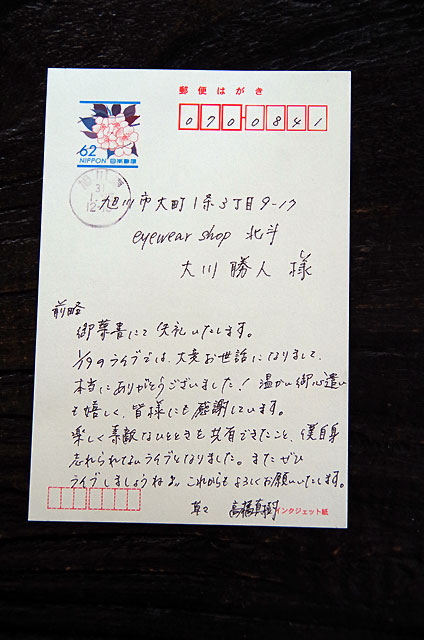 郵便はがき
0700841
62
NIPPON 日本郵便
旭川
31
12-18
旭川市大町1条3丁目9-17
eyewear shop 北斗
大川 勝人 様
前略
御葉書にて失礼いたします。
1/19のライブでは、大変お世話になりまして、
本当にありがとうございました! 温かい御心遣い
も嬉しく、皆様にも感謝しています。
楽しく素敵なひとときを共有できたこと、僕自身
忘れられないライブとなりました。またぜひ
ライブしましょうねっ。これからもよろしくお願いいたします。
草々 高橋真樹
インクジェット紙